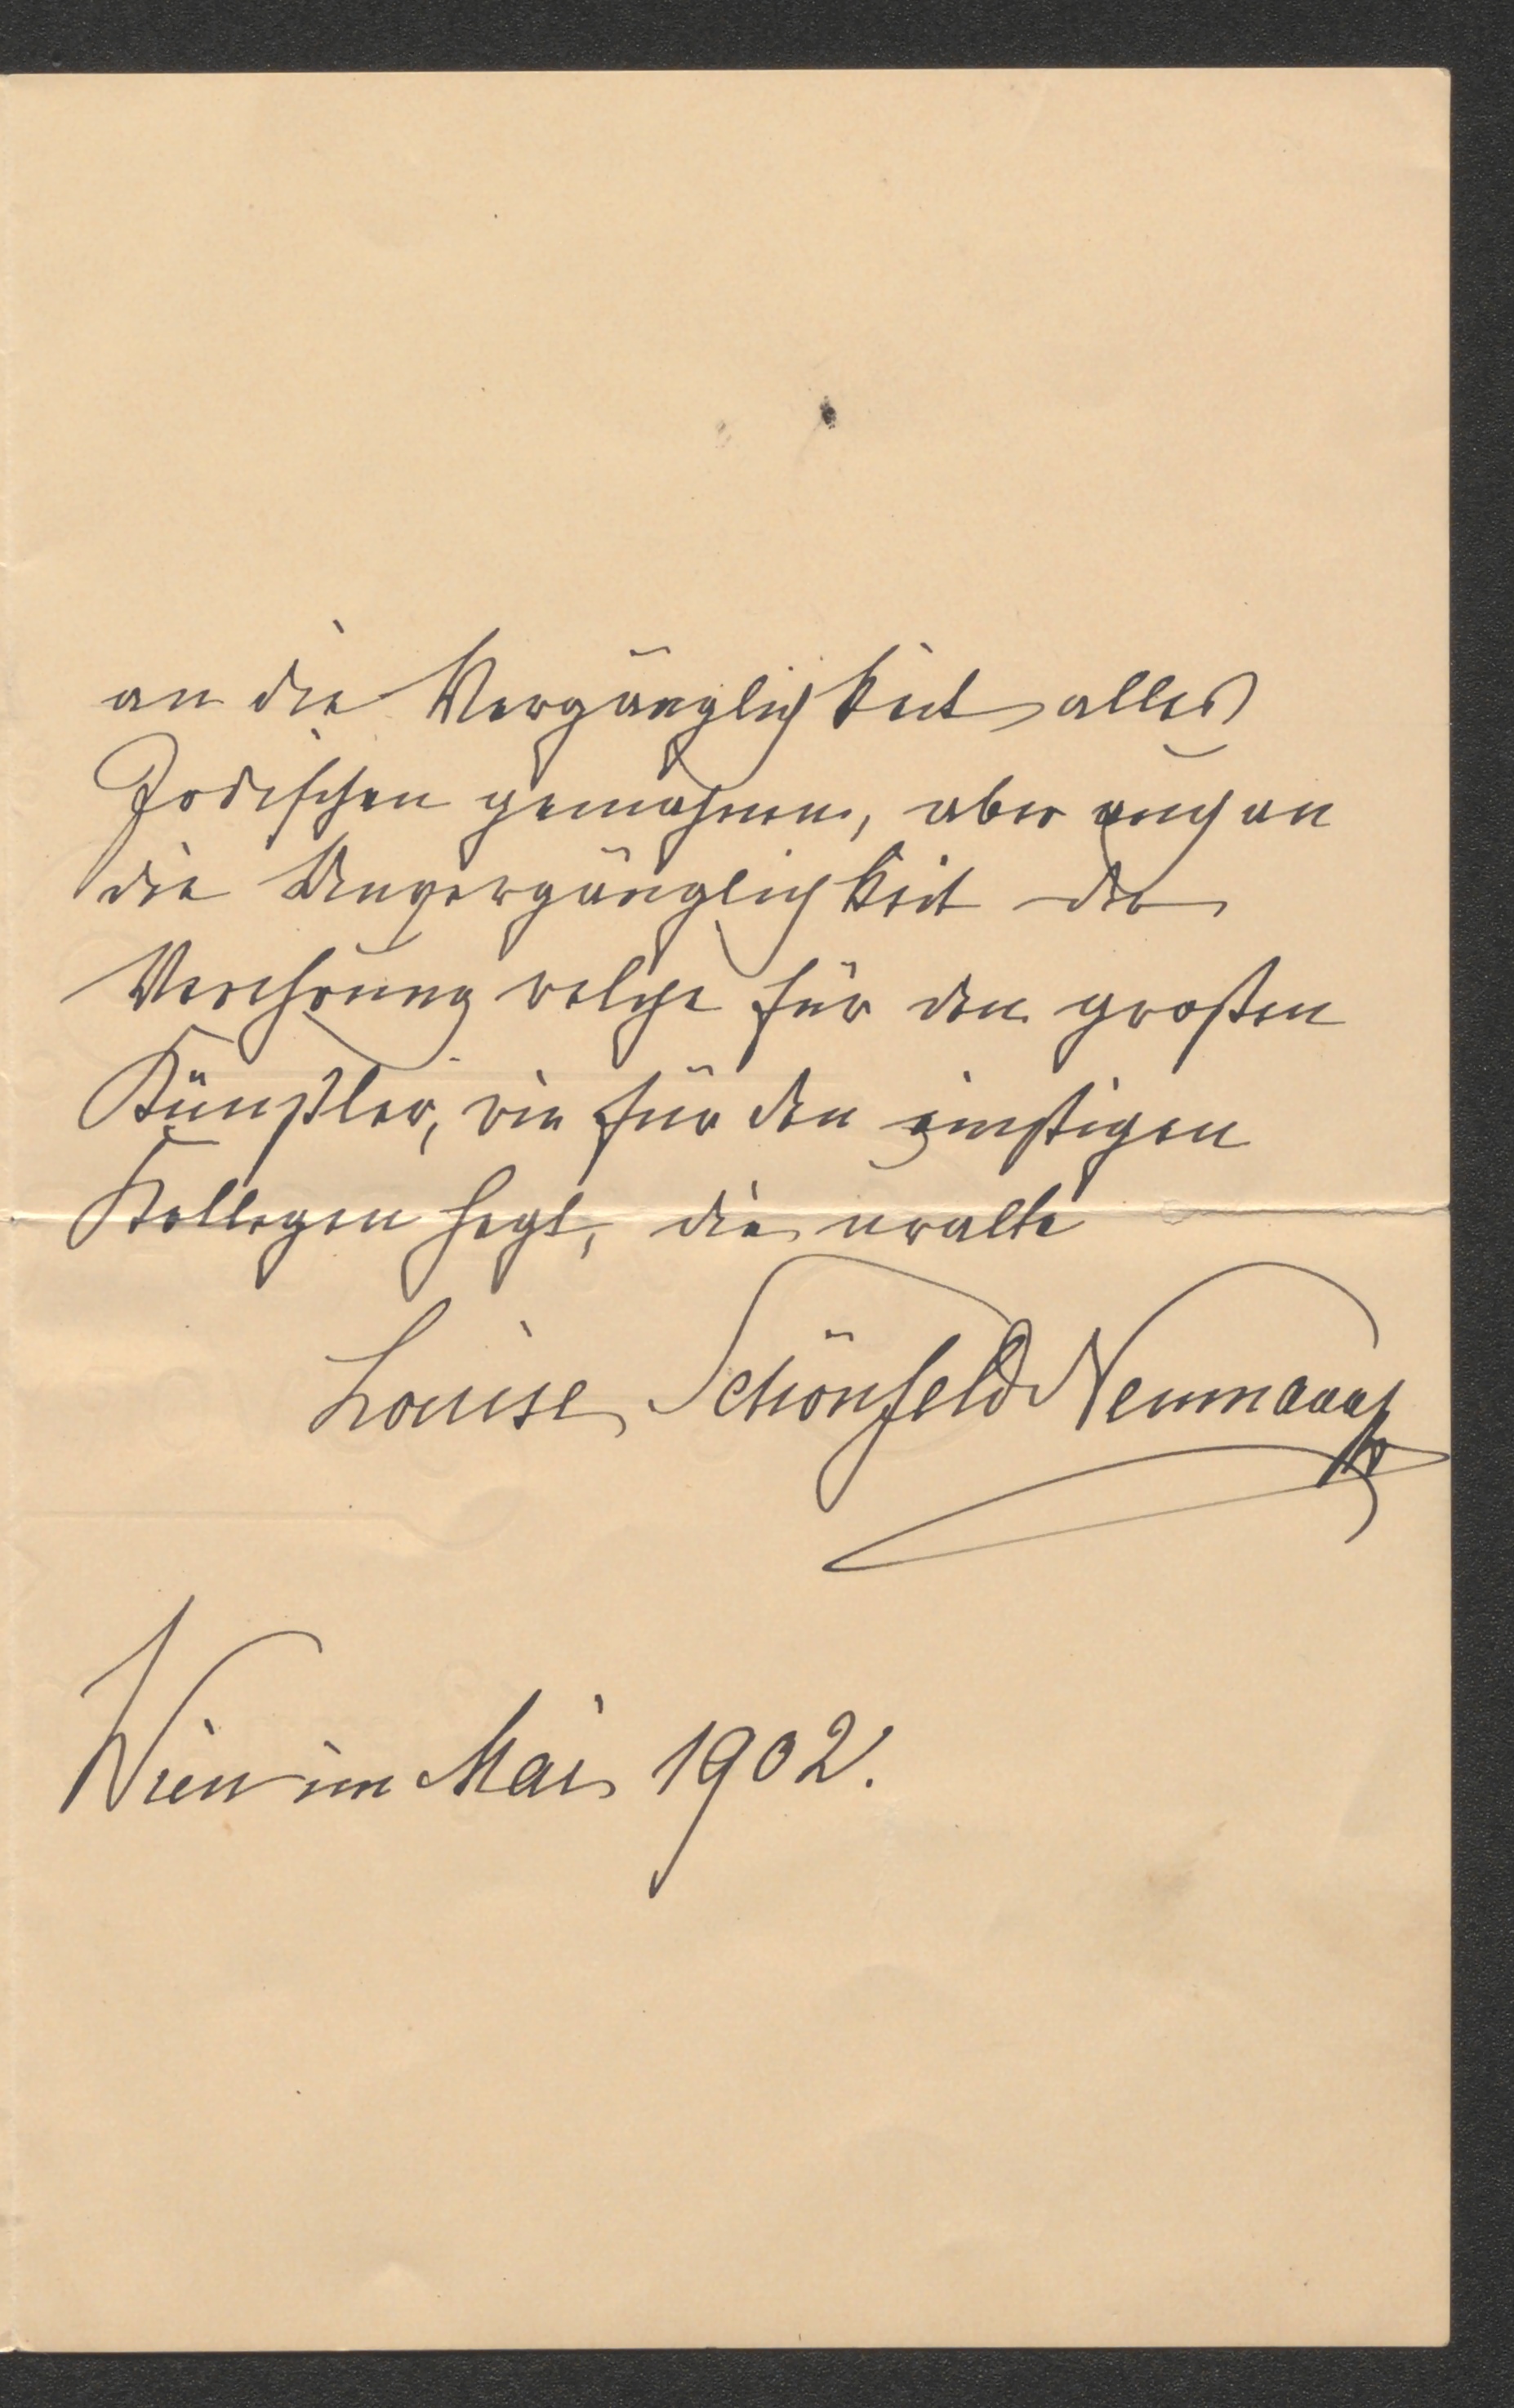 an die Vergänglichkeit alles
Irdischen gemahnen, aber auch an
die Unvergänglichkeit der
Verehrung welche für den großen
Künstler, wie für den einstigen
Kollegen hegt, die uralte
Louise Schönfeld Neumann
Wien im Mai 1902.